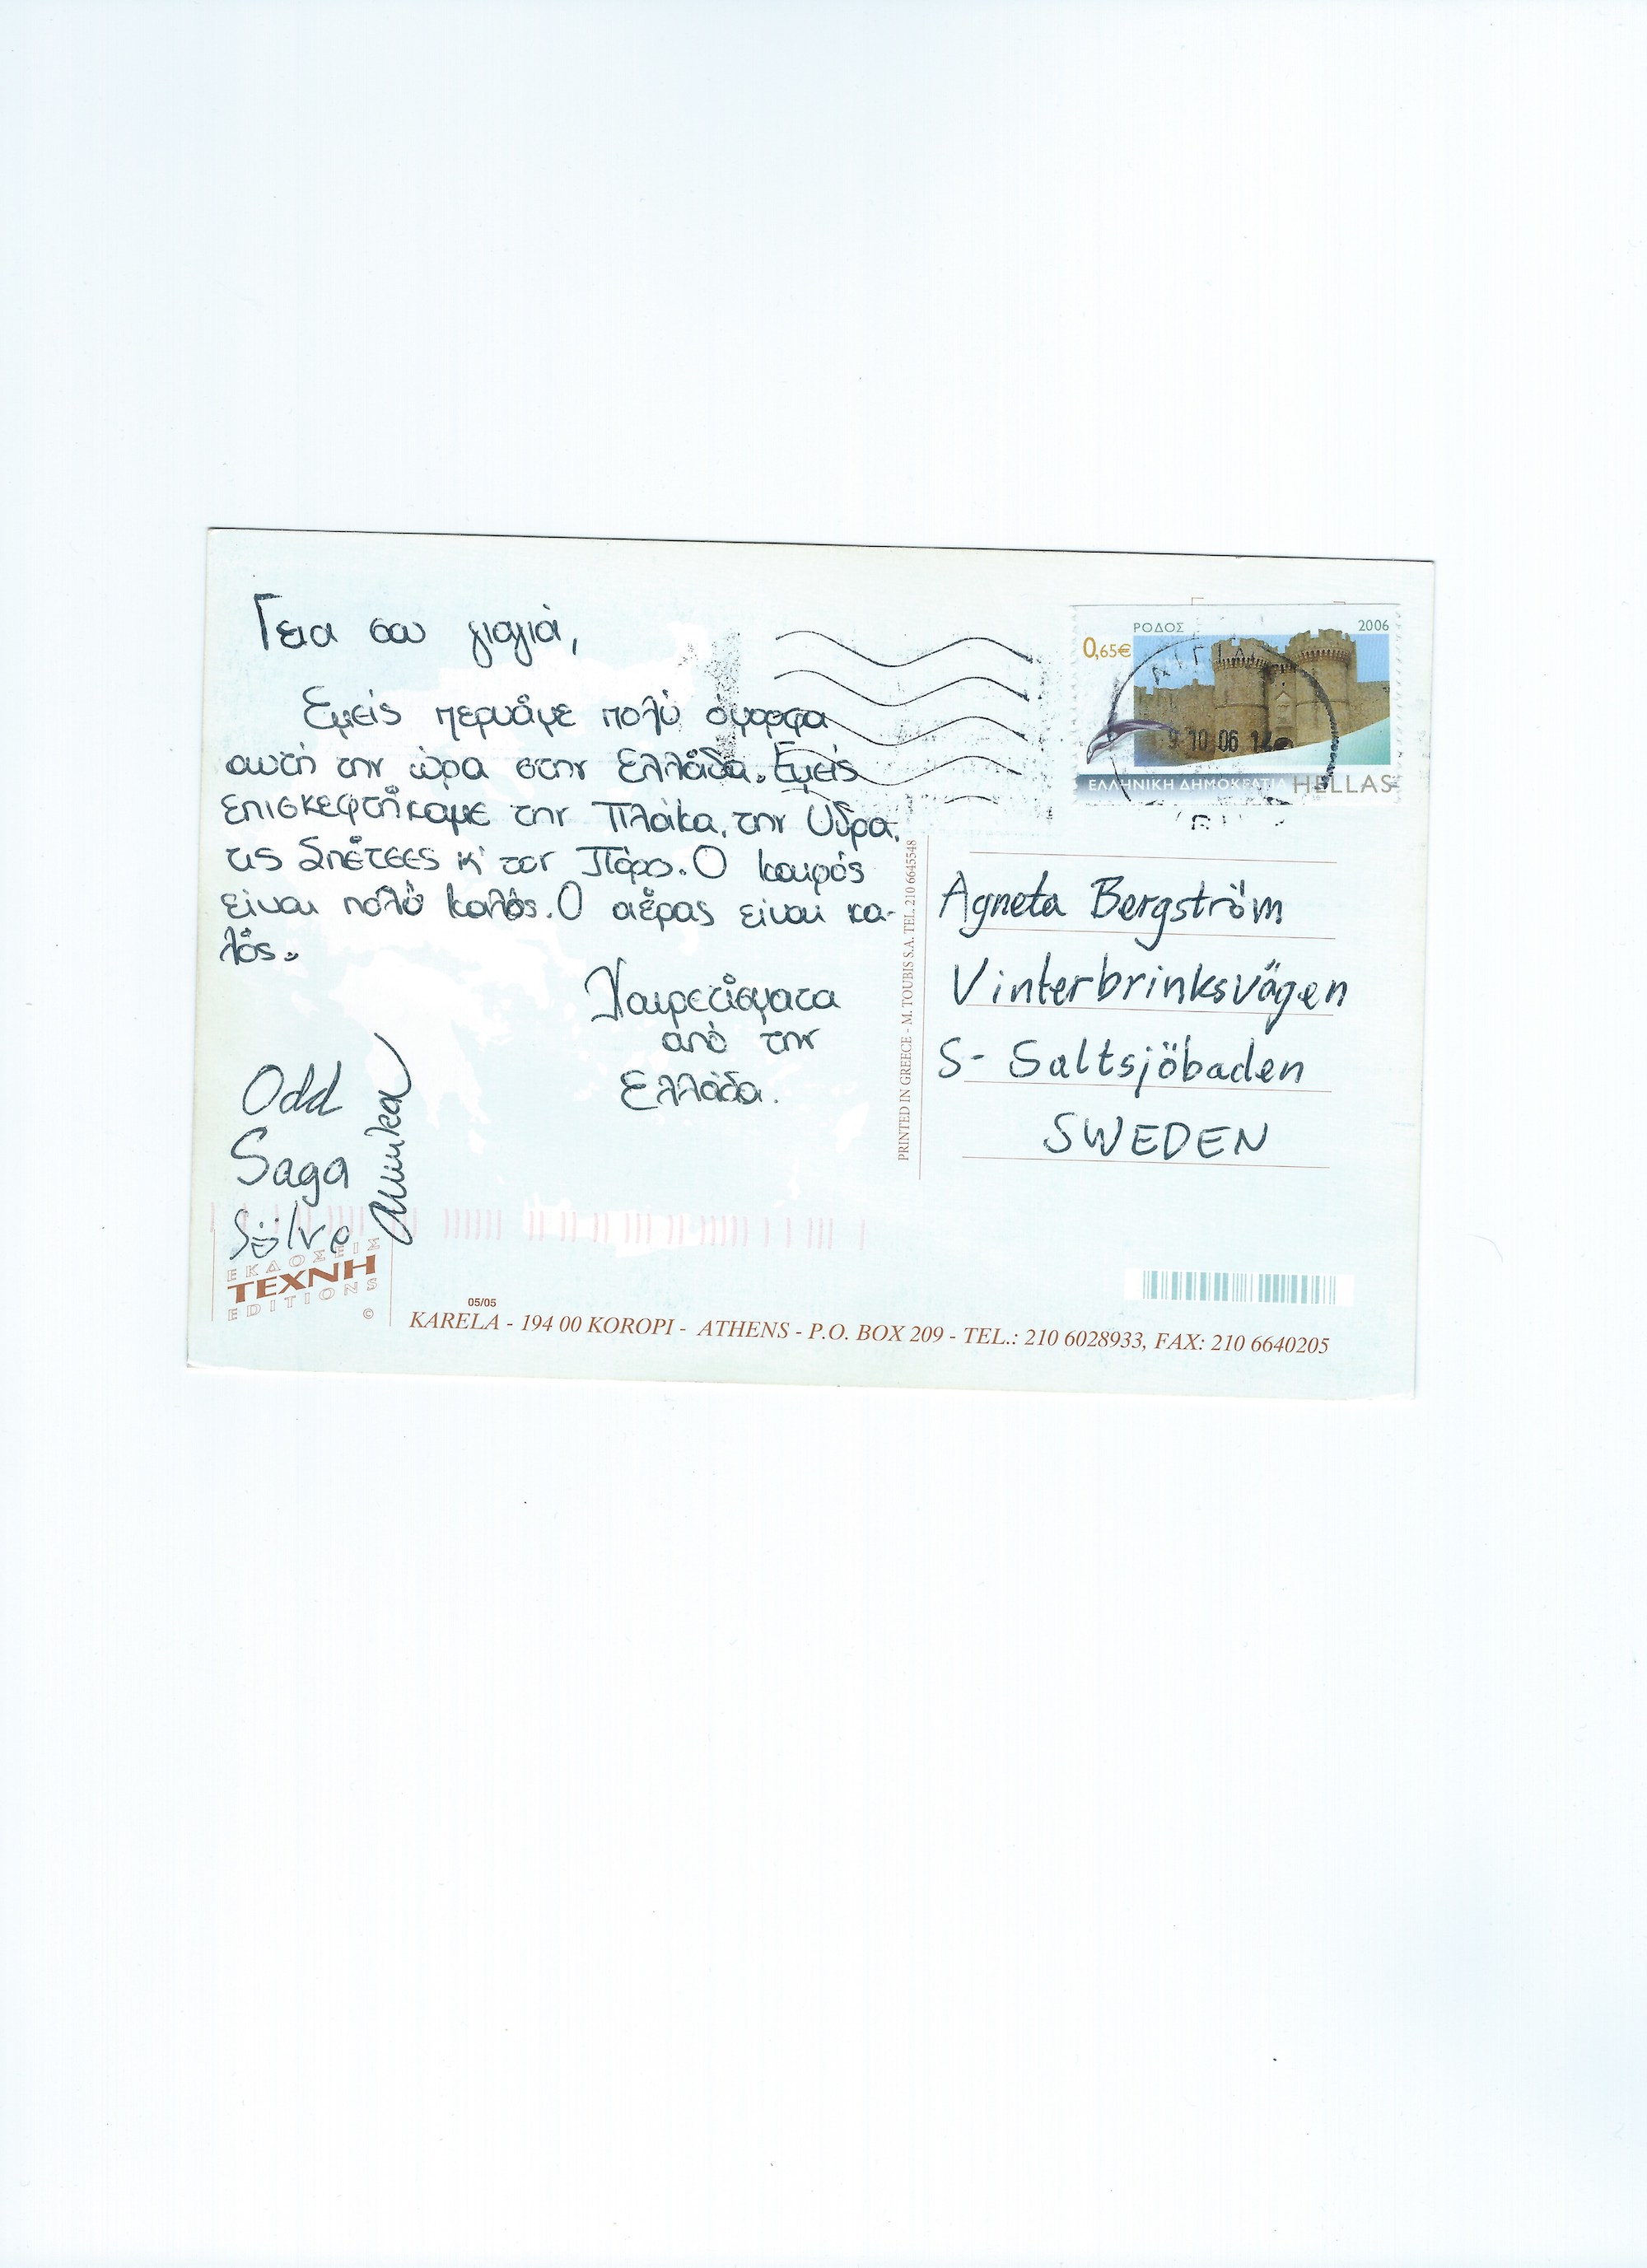 Γεια σου γιαγιά,
Εμείς περνάμε πολύ όμορφα
αυτή την ώρα στην Ελλάδα. Εμείς
επισκεφτήκαμε την Πλάκα, την Ύδρα,
τις Σπέτσες κ' τον Πόρο. Ο καιρός
είναι πόλύ καλός. Ο αέρας είναι κα-
λός.
Χαιρετίσματα
από την
Ελλάδα.
Odd
Saga
Sölve
Annika
ΡΟΔΟΣ 2006
0,65€
9 10 06 14
ΕΛΛΗΝΙΚΗ ΔΗΜΟΚΡΑΤΙΑ HELLAS
Agneta Bergström
Vinterbrinksvägen
S- Saltsjöbaden
SWEDEN
PRINTED IN GREECE - M. TOUBIS S.A. TEL. 210 6645548
ΕΚΔΟΣΕΙΣ
ΤΕΧΝΗ
EDITIONS
©
05/05
KARELA - 194 00 KOROPI - ATHENS - P.O. BOX 209 - TEL.: 210 6028933, FAX: 210 6640205